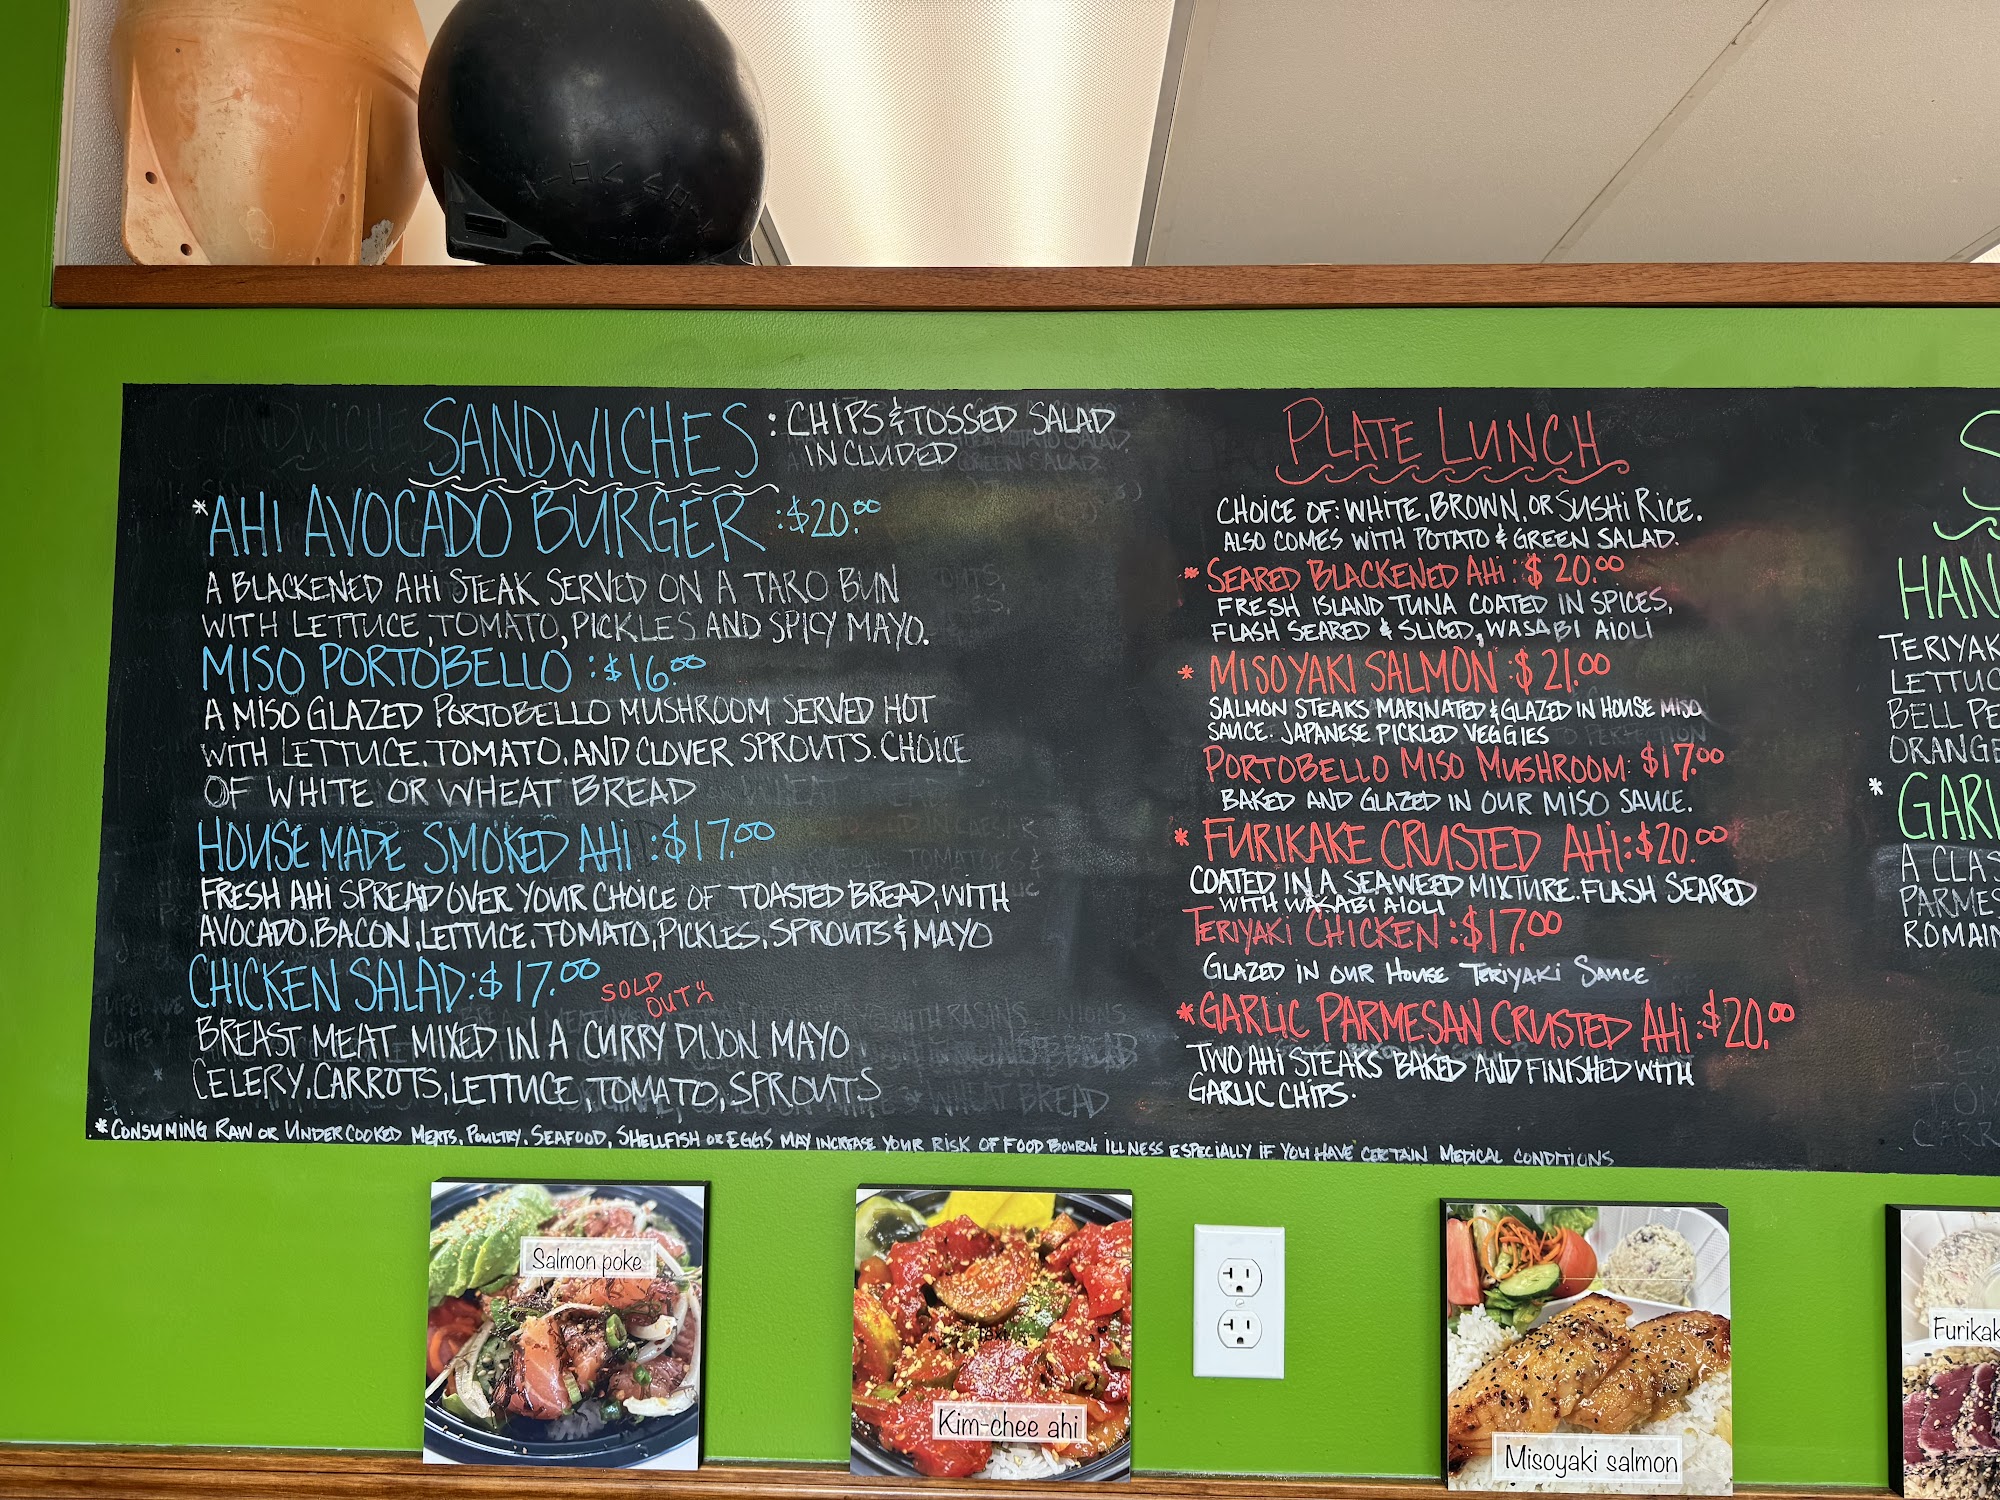 SANDWICHES : CHIPS & TOSSED SALAD
INCLUDED
*AHI AVOCADO BURGER :$20.00
A BLACKENED AHI STEAK SERVED ON A TARO BUN
WITH LETTUCE, TOMATO, PICKLES AND SPICY MAYO.
MISO PORTOBELLO :$16.00
A MISO GLAZED PORTOBELLO MUSHROOM SERVED HOT
WITH LETTUCE, TOMATO, AND CLOVER SPROUTS. CHOICE
OF WHITE OR WHEAT BREAD
HOUSE MADE SMOKED AHI :$17.00
FRESH AHI SPREAD OVER YOUR CHOICE OF TOASTED BREAD, WITH
AVOCADO, BACON, LETTUCE, TOMATO, PICKLES, SPROUTS & MAYO
CHICKEN SALAD :$17.00 SOLD
OUT
BREAST MEAT MIXED IN A CURRY DIJON MAYO
CELERY, CARROTS, LETTUCE, TOMATO, SPROUTS
PLATE LUNCH
CHOICE OF: WHITE, BROWN, OR SUSHI RICE.
ALSO COMES WITH POTATO & GREEN SALAD.
* SEARED BLACKENED AHI :$20.00
FRESH ISLAND TUNA COATED IN SPICES,
FLASH SEARED & SLICED, WASABI AIOLI
* MISOYAKI SALMON :$21.00
SALMON STEAKS MARINATED & GLAZED IN HOUSE MISO
SAUCE. JAPANESE PICKLED VEGGIES
PORTOBELLO MISO MUSHROOM: $17.00
BAKED AND GLAZED IN OUR MISO SAUCE.
* FURIKAKE CRUSTED AHI:$20.00
COATED IN A SEAWEED MIXTURE. FLASH SEARED
WITH WASABI AIOLI
TERIYAKI CHICKEN :$17.00
GLAZED IN OUR HOUSE TERIYAKI SAUCE
*GARLIC PARMESAN CRUSTED AHI:$20.00
TWO AHI STEAKS BAKED AND FINISHED WITH
GARLIC CHIPS.
S
HAN
TERIYAK
LETTUC
BELL PE
ORANGE
* GARL
A CLAS
PARMES
ROMAIN
*CONSUMING RAW OR UNDERCOOKED MEATS, POULTRY, SEAFOOD, SHELLFISH OR EGGS MAY INCREASE YOUR RISK OF FOOD BOURNE ILLNESS ESPECIALLY IF YOU HAVE CERTAIN MEDICAL CONDITIONS
Salmon poke
Text
Kim-chee ahi
Misoyaki salmon
Furikak